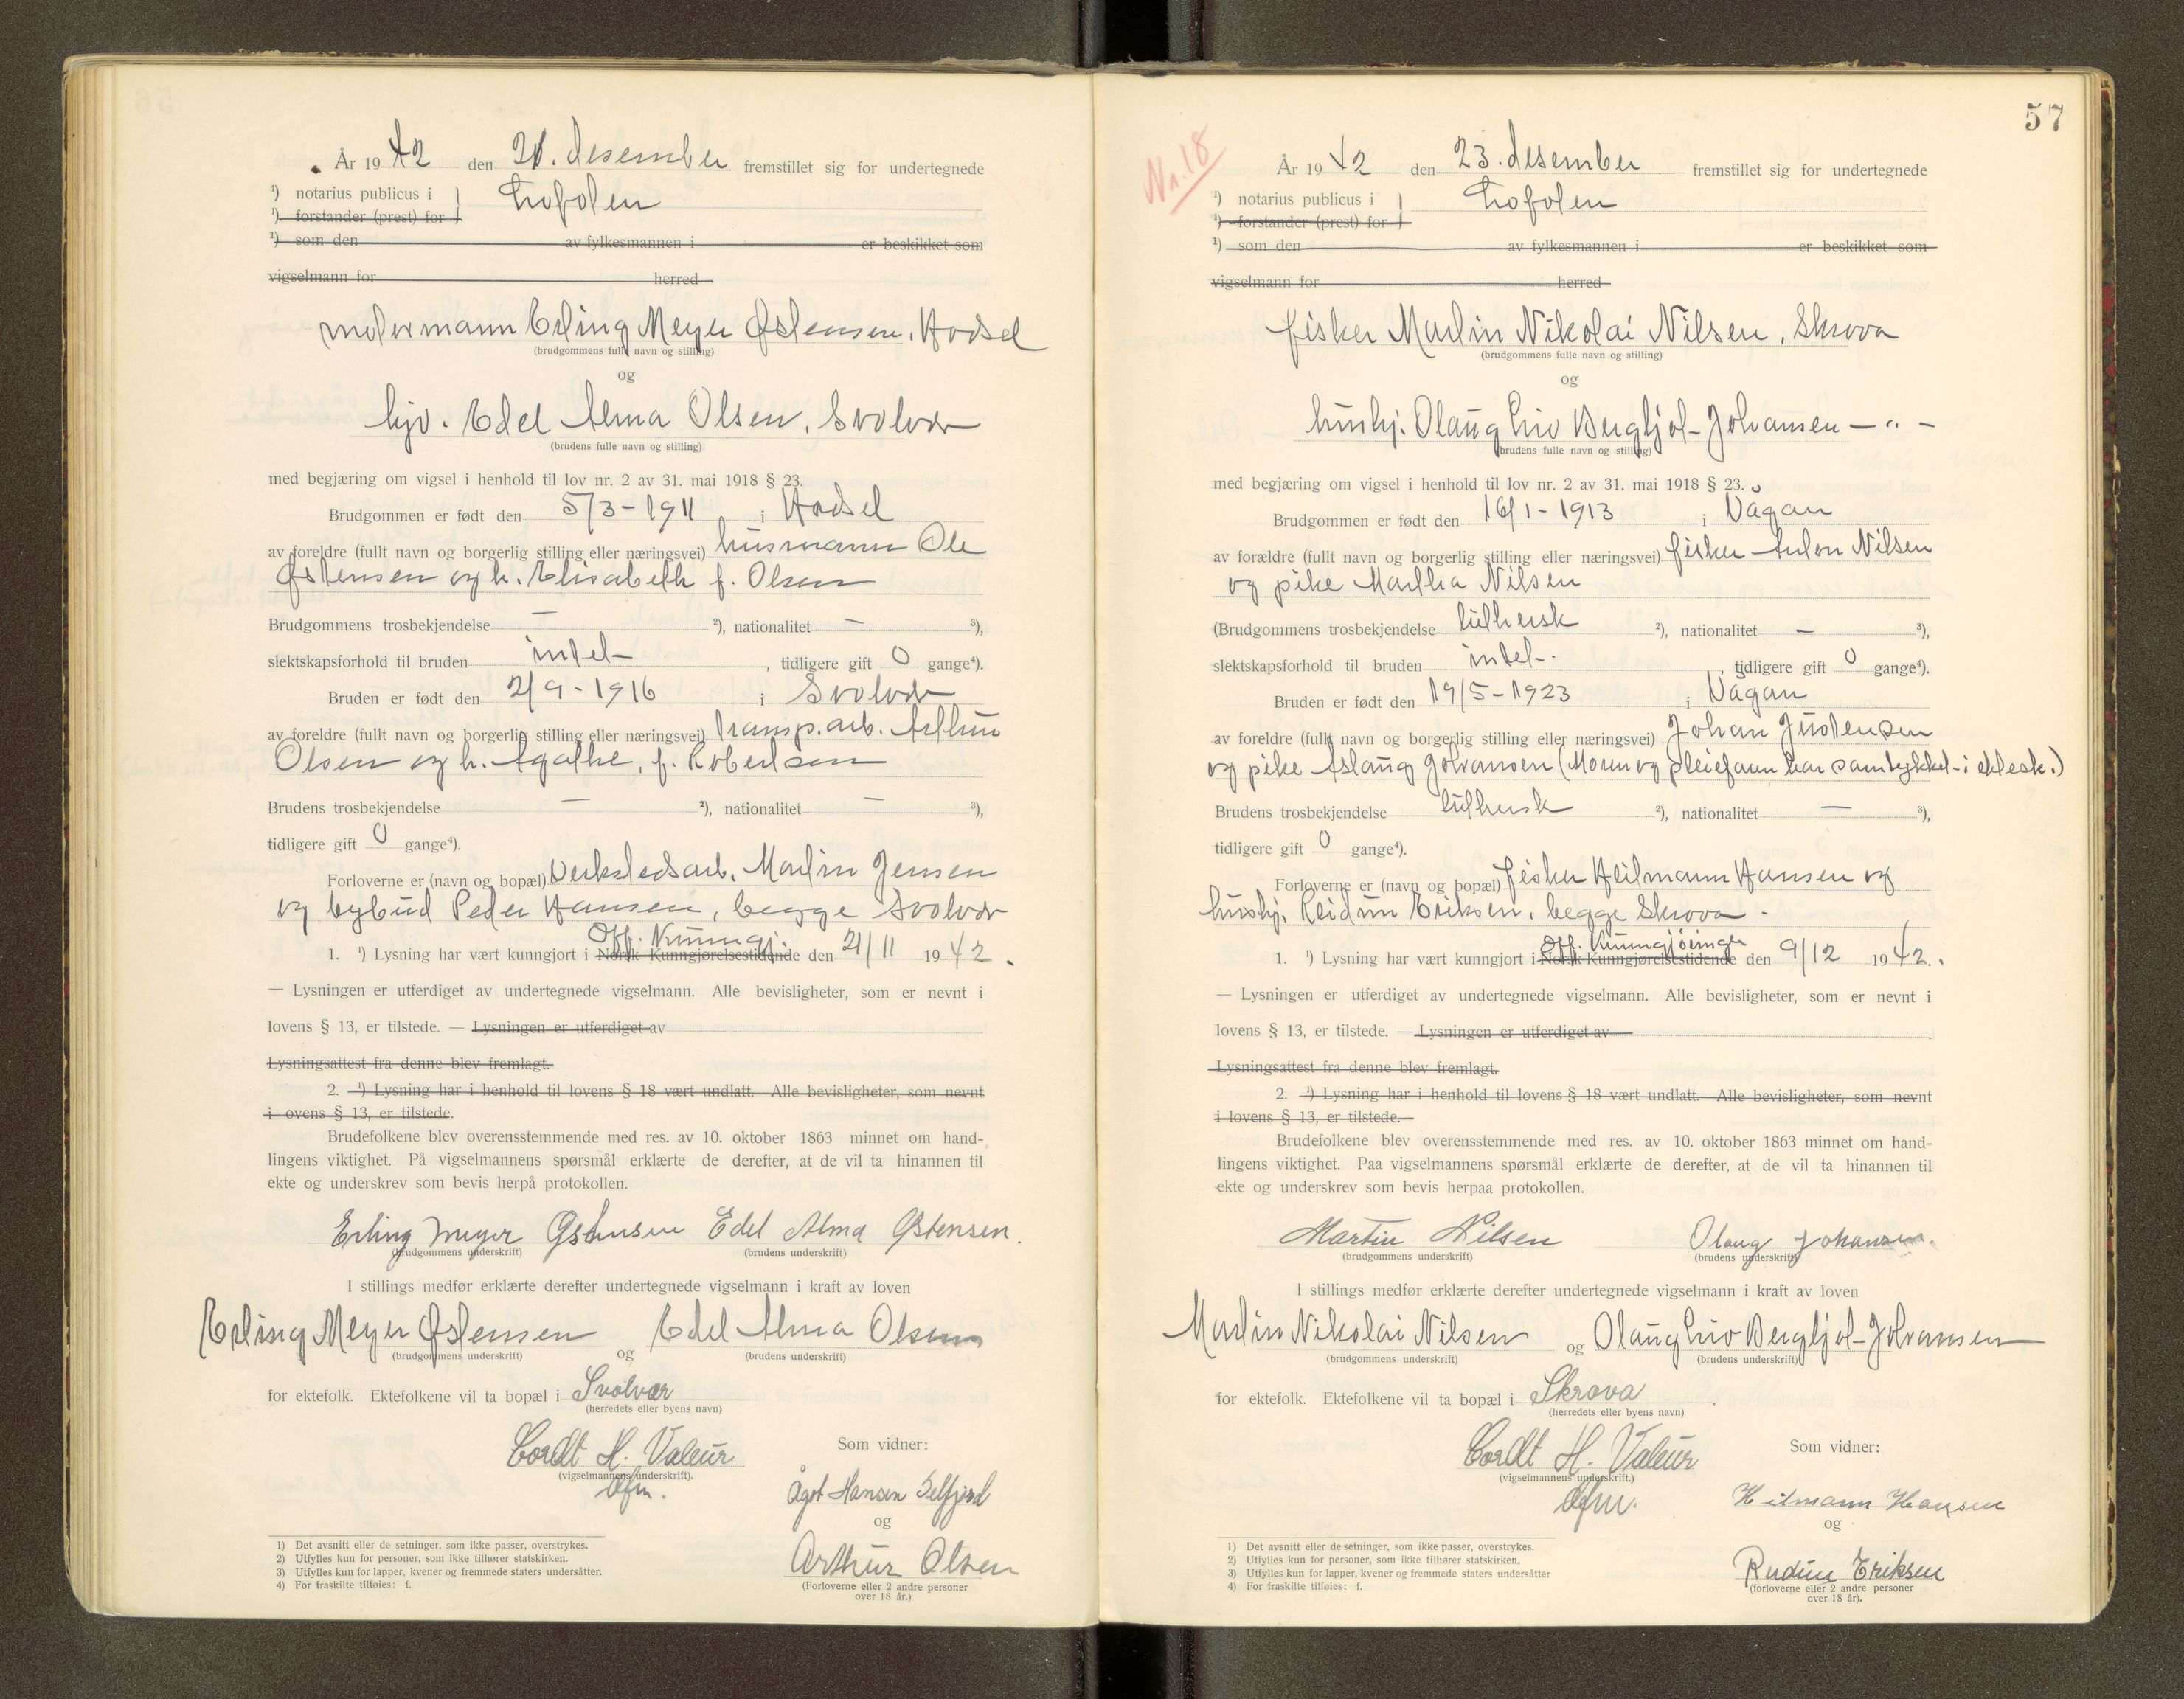 År 1942 den 21. desember fremstillet sig for undertegnede
¹) notarius publicus i } Lofoten
¹) forstander (prest) for }
¹) som den av fylkesmannen i er beskikket som
vigselmann for herred
Erling Meyer Østensen, Hadsel
(brudgommens fulle navn og stilling)
og
hjv. Edel Alma Olsen, Svolvær
(brudens fulle navn og stilling)
med begjæring om vigsel i henhold til lov nr. 2 av 31. mai 1918 § 23.
Brudgommen er født den 5/3-1911 i Hadsel
av foreldre (fullt navn og borgerlig stilling eller næringsvei) husmann Ole
Østensen og h. Elisabeth f. Olsen
Brudgommens trosbekjendelse — ²), nationalitet — ³),
slektskapsforhold til bruden intet , tidligere gift 0 gange⁴).
Bruden er født den 2/9-1916 i Svolvær
av foreldre (fullt navn og borgerlig stilling eller næringsvei) transp.arb. Arthur
Olsen og h. Agathe, f. Robertsen
Brudens trosbekjendelse — ²), nationalitet — ³),
tidligere gift 0 gange⁴).
Forloverne er (navn og bopæl) verkstedsarb. Martin Jensen
og bybud Peder Hansen, begge Svolvær
Off. Kunngj.
1. ¹) Lysning har vært kunngjort i Norsk Kunngjørelsestidende den 21/11 1942.
— Lysningen er utferdiget av undertegnede vigselmann. Alle bevisligheter, som er nevnt i
lovens § 13, er tilstede. — Lysningen er utferdiget av
Lysningsattest fra denne blev fremlagt.
2. ¹) Lysning har i henhold til lovens § 18 vært undlatt. Alle bevisligheter, som nevnt
i ovens § 13, er tilstede.
Brudefolkene blev overensstemmende med res. av 10. oktober 1863 minnet om hand-
lingens viktighet. På vigselmannens spørsmål erklærte de derefter, at de vil ta hinannen til
ekte og underskrev som bevis herpå protokollen.
Erling Meyer Østensen Edel Alma Østensen.
(brudgommens underskrift) (brudens underskrift)
I stillings medfør erklærte derefter undertegnede vigselmann i kraft av loven
Erling Meyer Østensen og Edel Alma Olsen
(brudgommens underskrift) (brudens underskrift)
for ektefolk. Ektefolkene vil ta bopæl i Svolvær
(herredets eller byens navn)
Cordt H. Valeur
(vigselmannens underskrift).
Som vidner:
Ågot Hansen Selfjord
og
Arthur Olsen
(Forloverne eller 2 andre personer
over 18 år.)
1) Det avsnitt eller de setninger, som ikke passer, overstrykes.
2) Utfylles kun for personer, som ikke tilhører statskirken.
3) Utfylles kun for lapper, kvener og fremmede staters undersåtter.
4) For fraskilte tilføies: f.
57
Nr. 18
År 1942 den 23. desember fremstillet sig for undertegnede
¹) notarius publicus i } Lofoten
¹) forstander (prest) for }
¹) som den av fylkesmannen i er beskikket som
vigselmann for herred
fisker Martin Nikolai Nilsen, Skrova
(brudgommens fulle navn og stilling)
og
hushj. Olaug Liv Bergljot Johansen — " —
(brudens fulle navn og stilling)
med begjæring om vigsel i henhold til lov nr. 2 av 31. mai 1918 § 23.
Brudgommen er født den 16/1-1913 i Vågan
av forældre (fullt navn og borgerlig stilling eller næringsvei) fisker Anton Nilsen
og pike Martha Nilsen
(Brudgommens trosbekjendelse luthersk ²), nationalitet — ³),
slektskapsforhold til bruden intet. , tidligere gift 0 gange⁴).
Bruden er født den 19/5-1923 i Vågan
av foreldre (fullt navn og borgerlig stilling eller næringsvei) Johan Justensen
og pike Aslaug Johansen (Moren og pleiefaren har samtykket i ektesk.)
Brudens trosbekjendelse luthersk ²), nationalitet — ³),
tidligere gift 0 gange⁴).
Forloverne er (navn og bopæl) fisker Heilmann Hansen og
hushj. Reidun Eriksen, begge Skrova.
Off. Kunngjøringer
1. ¹) Lysning har vært kunngjort i Norsk Kunngjørelsestidende den 9/12 1942.
— Lysningen er utferdiget av undertegnede vigselmann. Alle bevisligheter, som er nevnt i
lovens § 13, er tilstede. — Lysningen er utferdiget av
Lysningsattest fra denne blev fremlagt.
2. ¹) Lysning har i henhold til lovens § 18 vært undlatt. Alle bevisligheter, som nevnt
i lovens § 13, er tilstede.
Brudefolkene blev overensstemmende med res. av 10. oktober 1863 minnet om hand-
lingens viktighet. Paa vigselmannens spørsmål erklærte de derefter, at de vil ta hinannen til
ekte og underskrev som bevis herpaa protokollen.
Martin Nilsen Olaug Johansen.
(brudgommens underskrift) (brudens underskrift)
I stillings medfør erklærte derefter undertegnede vigselmann i kraft av loven
Martin Nikolai Nilsen og Olaug Liv Bergljot Johansen
(brudgommens underskrift) (brudens underskrift)
for ektefolk. Ektefolkene vil ta bopæl i Skrova.
(herredets eller byens navn)
Cordt H. Valeur
(vigselmannens underskrift.)
Som vidner:
Heilmann Hansen
og
Reidun Eriksen
(forloverne eller 2 andre personer
over 18 år).
1) Det avsnitt eller de setninger, som ikke passer, overstrykes.
2) Utfylles kun for personer, som ikke tilhører statskirken.
3) Utfylles kun for lapper, kvener og fremmede staters undersåtter
4) For fraskilte tilføies: f.